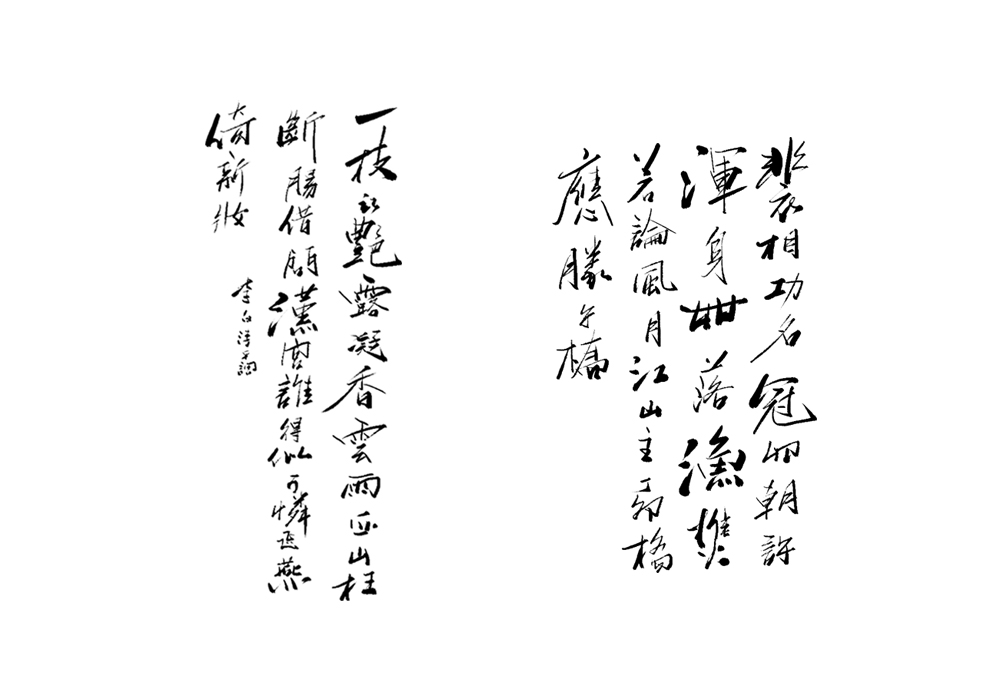 裴相功名冠四朝許
渾身世落漁樵
若論風月江山主丁卯橋
應勝午橋
一枝紅艷露凝香雲雨巫山枉
斷腸借問漢宮誰得似可憐飛燕
倚新妝
李白清平調